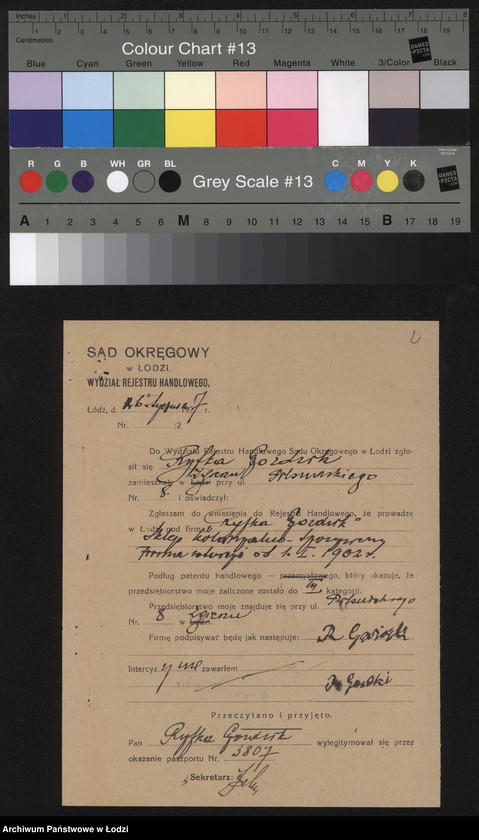 Inches 1 2 3 4 5 6 7 8
Centimetres 1 2 3 4 5 6 7 8 9 10 11 12 13 14 15 16 17 18 19
Colour Chart #13
DANES PICTA .COM
Blue Cyan Green Yellow Red Magenta White 3/Color Black
R G B WH GR BL Grey Scale #13 C M Y K
DANES PICTA .COM
A 1 2 3 4 5 6 M 8 9 10 11 12 13 14 15 B 17 18 19
SĄD OKRĘGOWY
W ŁODZI.
WYDZIAŁ REJESTRU HANDLOWEGO.
Łódź, d. 7 r.
Nr. /2
Do Wydziału Rejestru Handlowego Sądu Okręgowego w Łodzi zgło-
sił się Ryfka Gozdzik
zamieszkały w Łodzi przy ul.
Nr. 8. i oświadczył:
Zgłaszam do wniesienia do Rejestru Handlowego, że prowadzę
w Łodzi pod firmą "Ryfka Gozdzik"
Sklep
Firma istnieje od 1. I. 1902 r.
Podług patentu handlowego — przemysłowego, który okazuje, że
przedsiębiorstwo moje zaliczone zostało do III kategorji.
Przedsiębiorstwo moje znajduje się przy ul.
Nr. 8 w Łodzi
Firmę podpisywać będę jak następuje:
Intercyz y nie zawarłem
Przeczytano i przyjęto.
Pan Ryfka Gozdzik wylegitymował się przez
okazanie paszportu Nr. 3807
Sekretarz:
Archiwum Państwowe w Łodzi